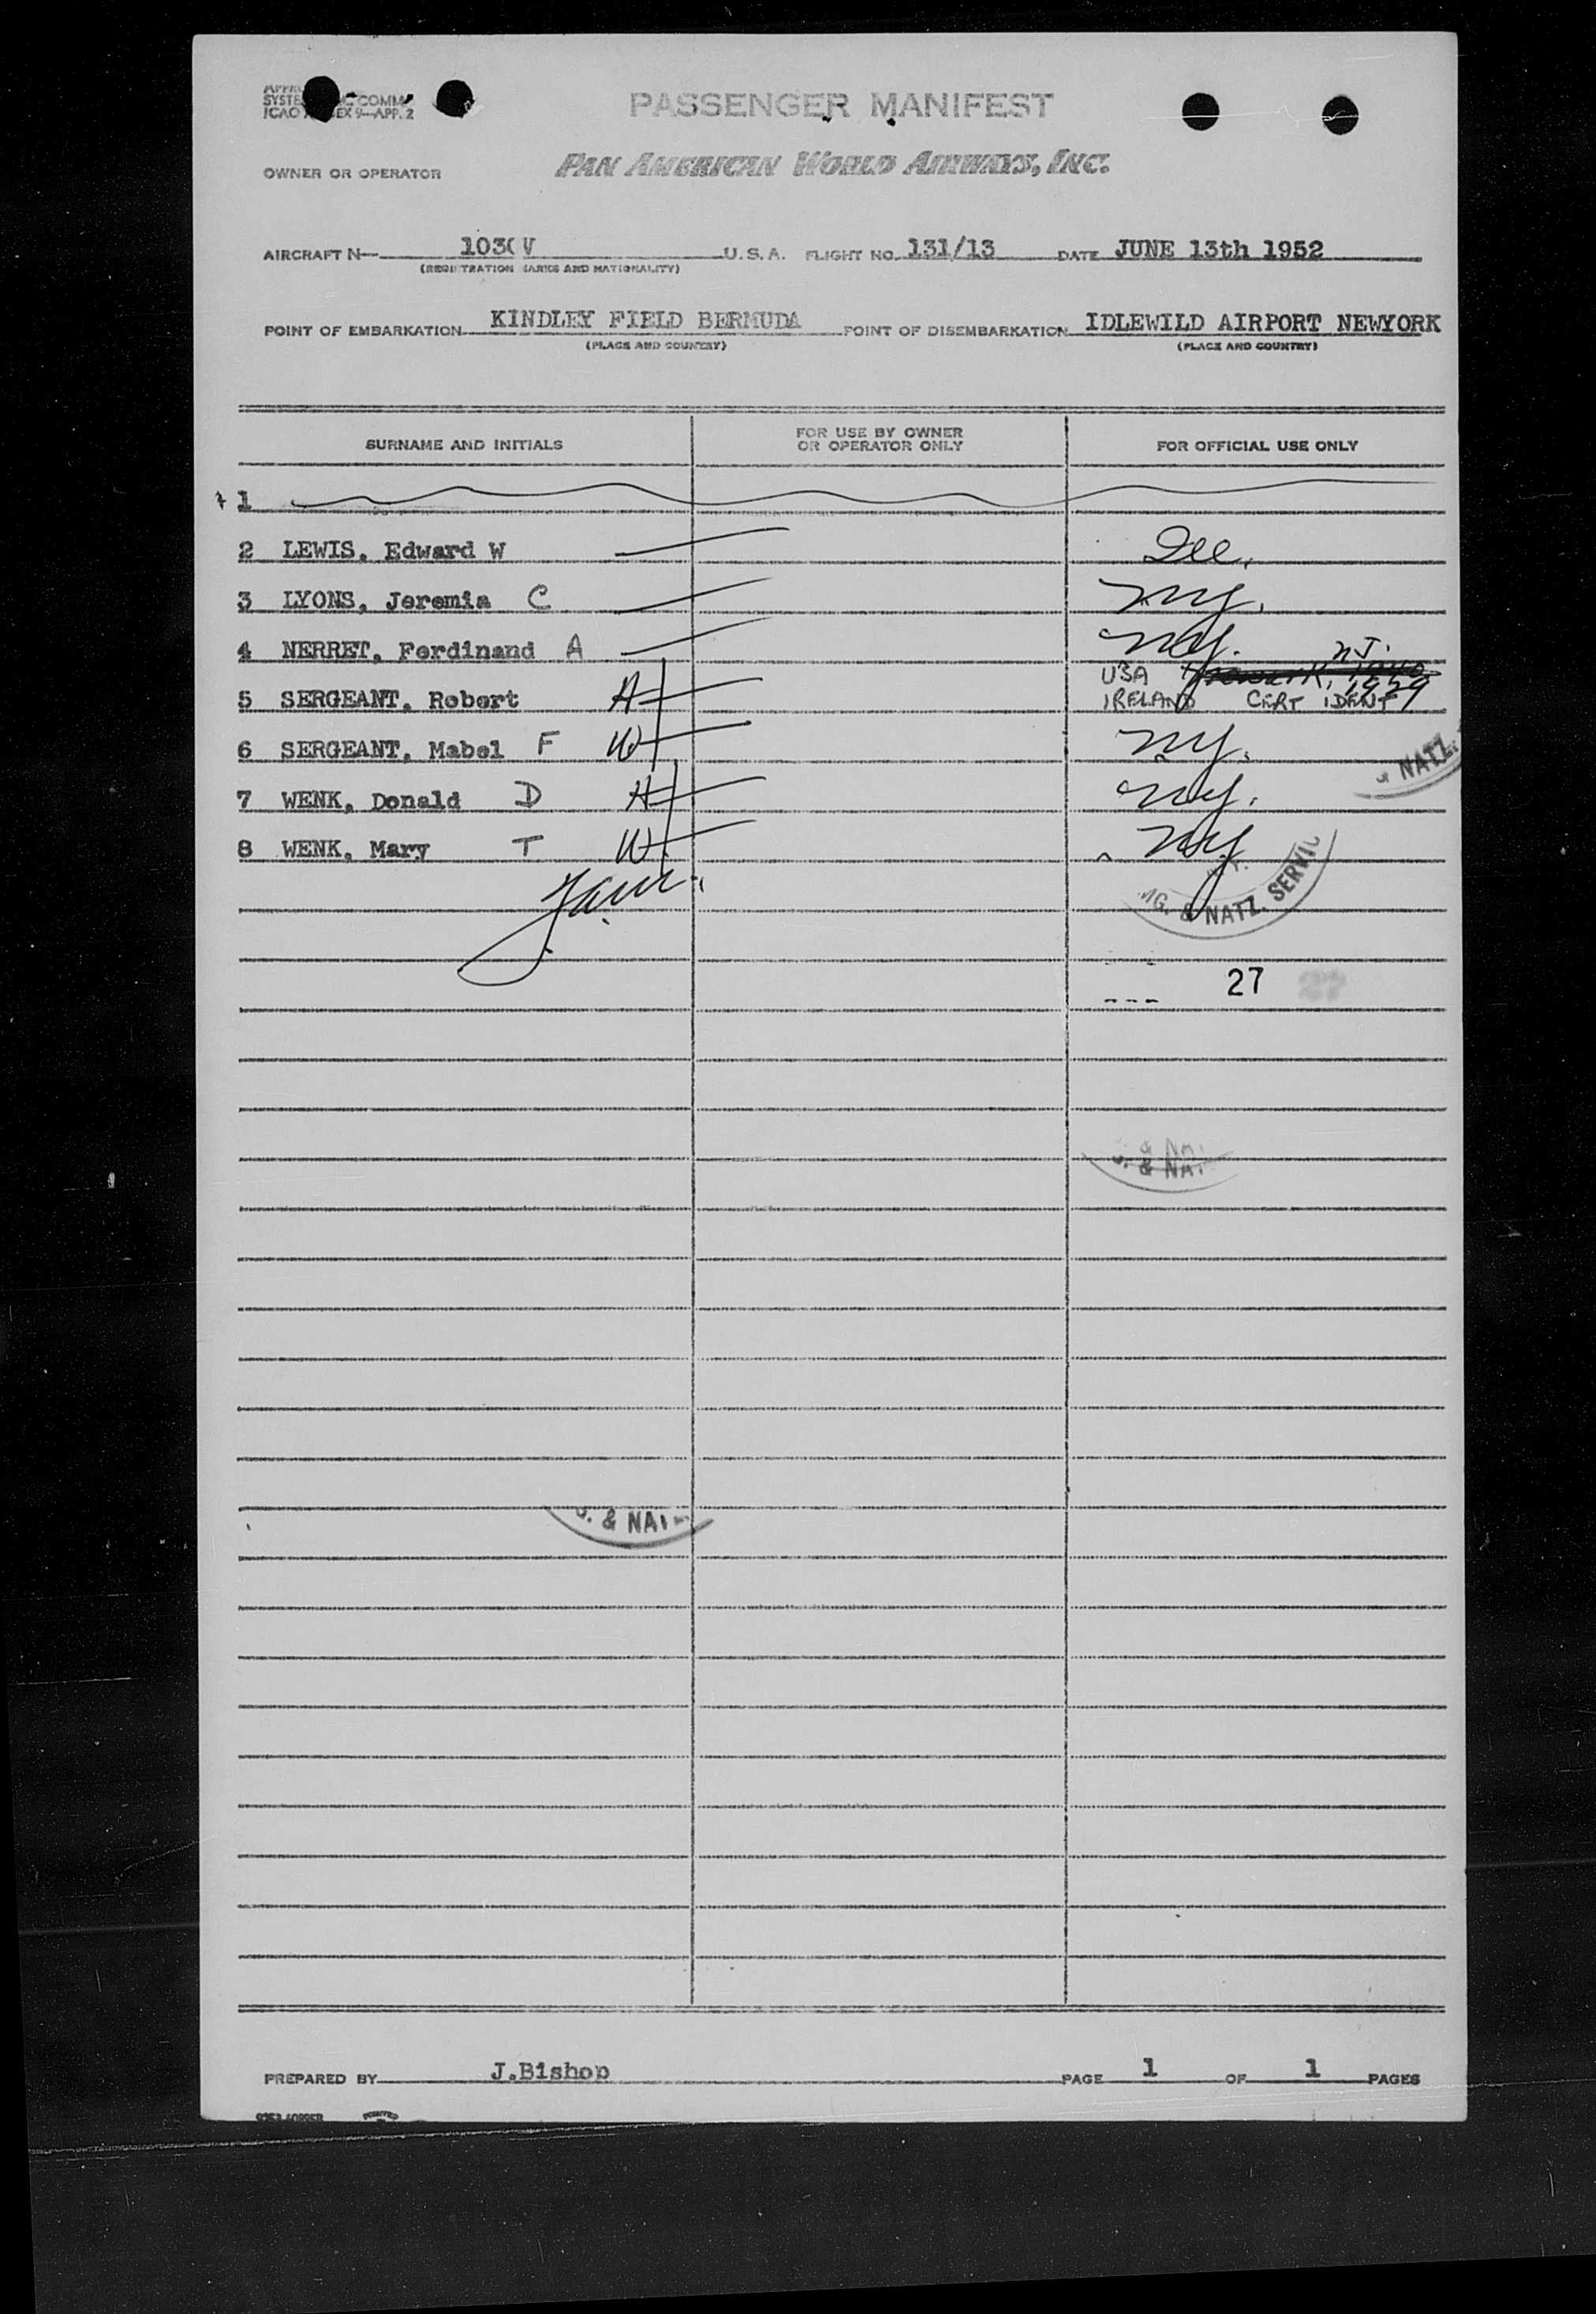 SYSTE COMM
ICAO EX 9-APP. 2
PASSENGER MANIFEST
OWNER OR OPERATOR PAN AMERICAN WORLD AIRWAYS, INC.
AIRCRAFT N- 103 V U.S.A. FLIGHT NO. 131/13 DATE JUNE 13th 1952
(REGISTRATION MARKS AND NATIONALITY)
POINT OF EMBARKATION KINDLEY FIELD BERMUDA POINT OF DISEMBARKATION IDLEWILD AIRPORT NEWYORK
(PLACE AND COUNTRY) (PLACE AND COUNTRY)
SURNAME AND INITIALS FOR USE BY OWNER OR OPERATOR ONLY FOR OFFICIAL USE ONLY
1
2 LEWIS, Edward W
3 LYONS, Jeremia C NY.
4 NERRET, Ferdinand A NY.
NJ.
USA
5 SERGEANT, Robert H IRELAND CERT IDENT 1929
6 SERGEANT, Mabel F W NY.
& NATZ.
7 WENK, Donald D H NY.
8 WENK, Mary T W NY
& NATZ. SERVIC
27
& NA
& NAT
PREPARED BY J.Bishop PAGE 1 OF 1 PAGES